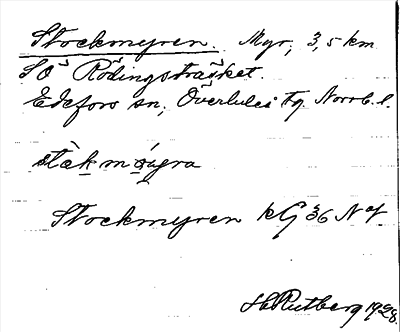 Stockmyren. Myr, 3,5 km
SÖ Rödingsträsket.
Edefors sn, Överluleå tg. Norrb. l.
Stockmyren kG 36 Nof
H. Rutberg 1928.